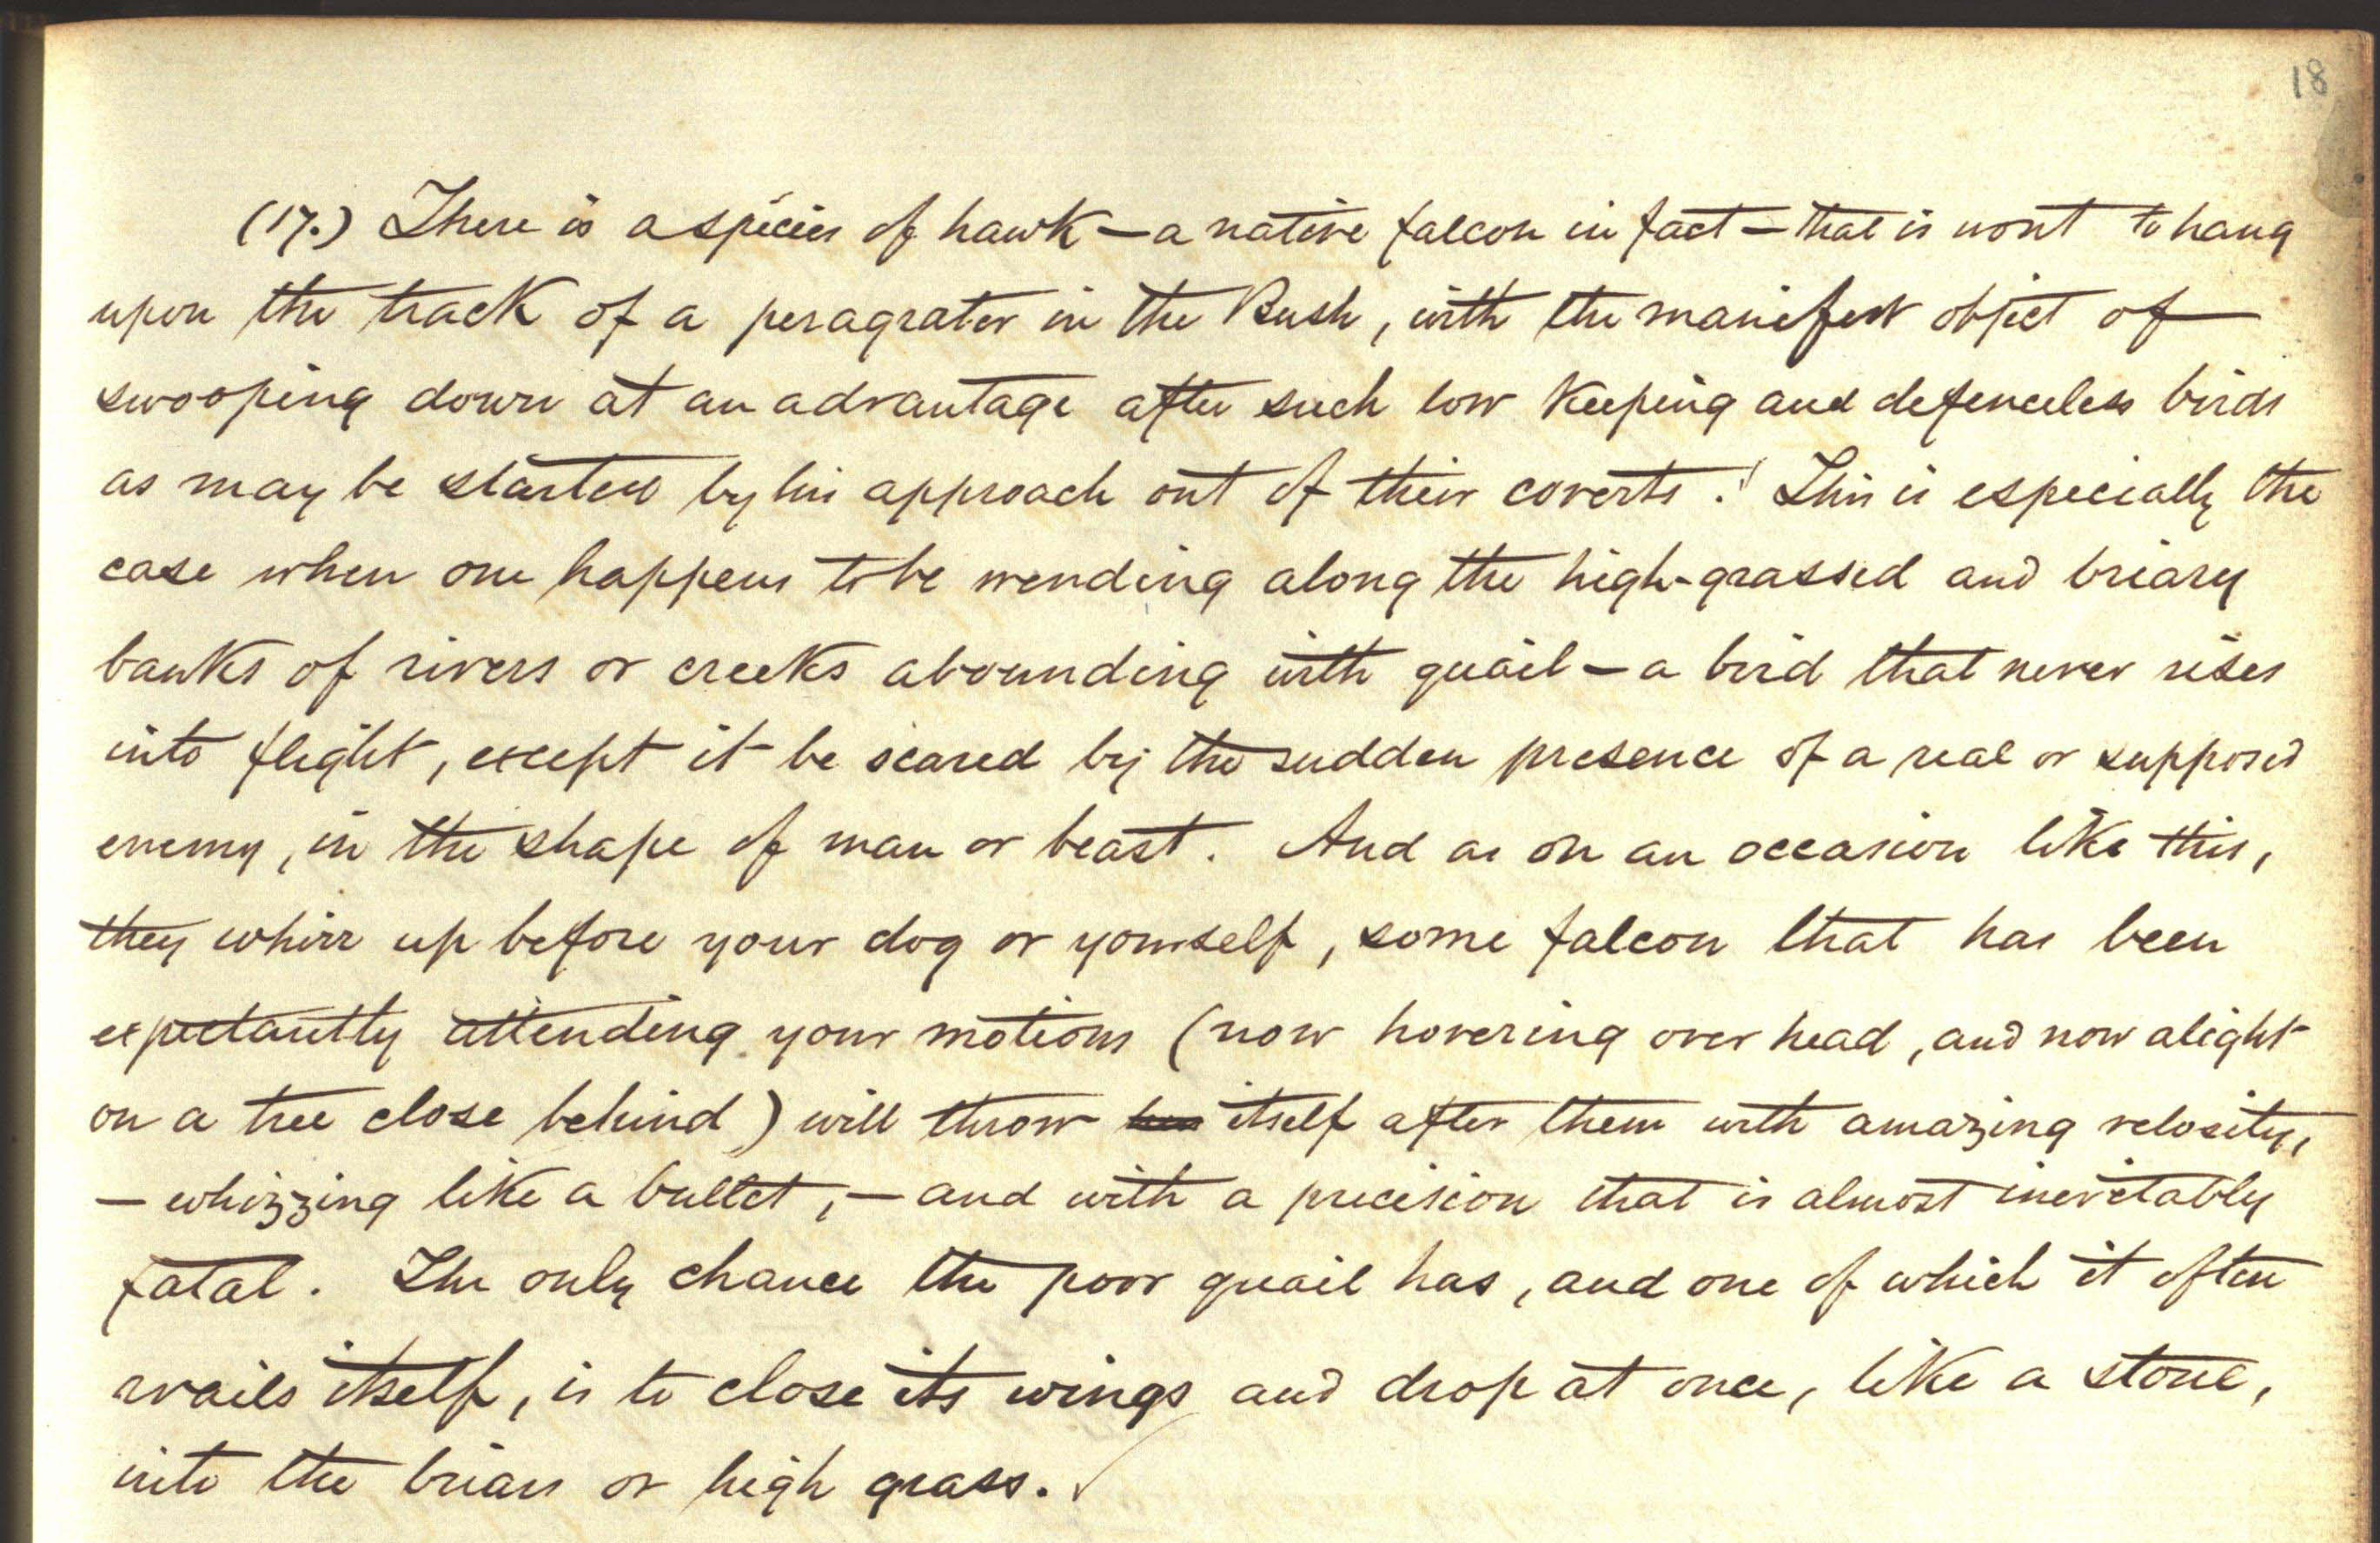 18
(17.) There is a species of hawk — a native falcon in fact — that is wont to hang
upon the track of a peragrator in the Bush, with the manifest object of
swooping down at an advantage after such low keeping and defenceless birds
as may be started by his approach out of their coverts. This is especially the
case when one happens to be wending along the high-grassed and briary
banks of rivers or creeks abounding with quail — a bird that never rises
into flight, except it be scared by the sudden presence of a real or supposed
enemy, in the shape of man or beast. And as on an occasion like this,
they whirr up before your dog or yourself, some falcon that has been
expectantly attending your motions (now hovering over head, and now alight
on a tree close behind) will throw itself after them with amazing velosity,
— whizzing like a bullet, — and with a precision that is almost inevitably
fatal. The only chance the poor quail has, and one of which it often
avails itself, is to close its wings and drop at once, like a stone,
into the briars or high grass.